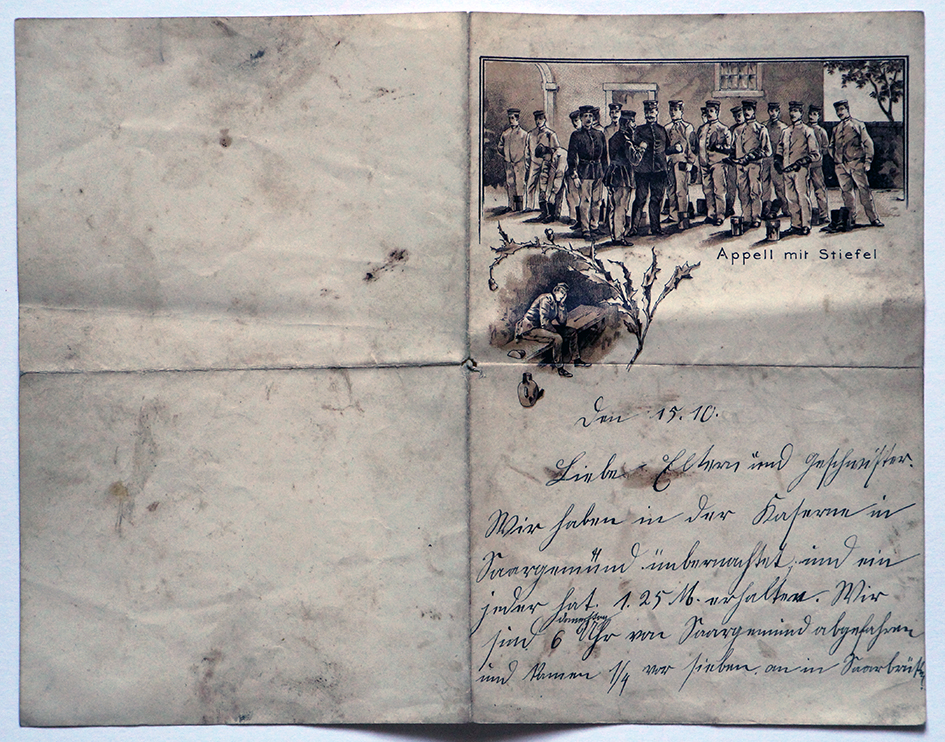 Appell mit Stiefel
Den 15.10.
Liebe Eltern und Geschwister.
Wir haben in der Kaserne in
Saargemünd übernachtet, und ein
jeder hat 1.25 M. erhalten. Wir
sind 6 Uhr von Saargemünd abgefahren
und kamen 1/4 vor sieben an in